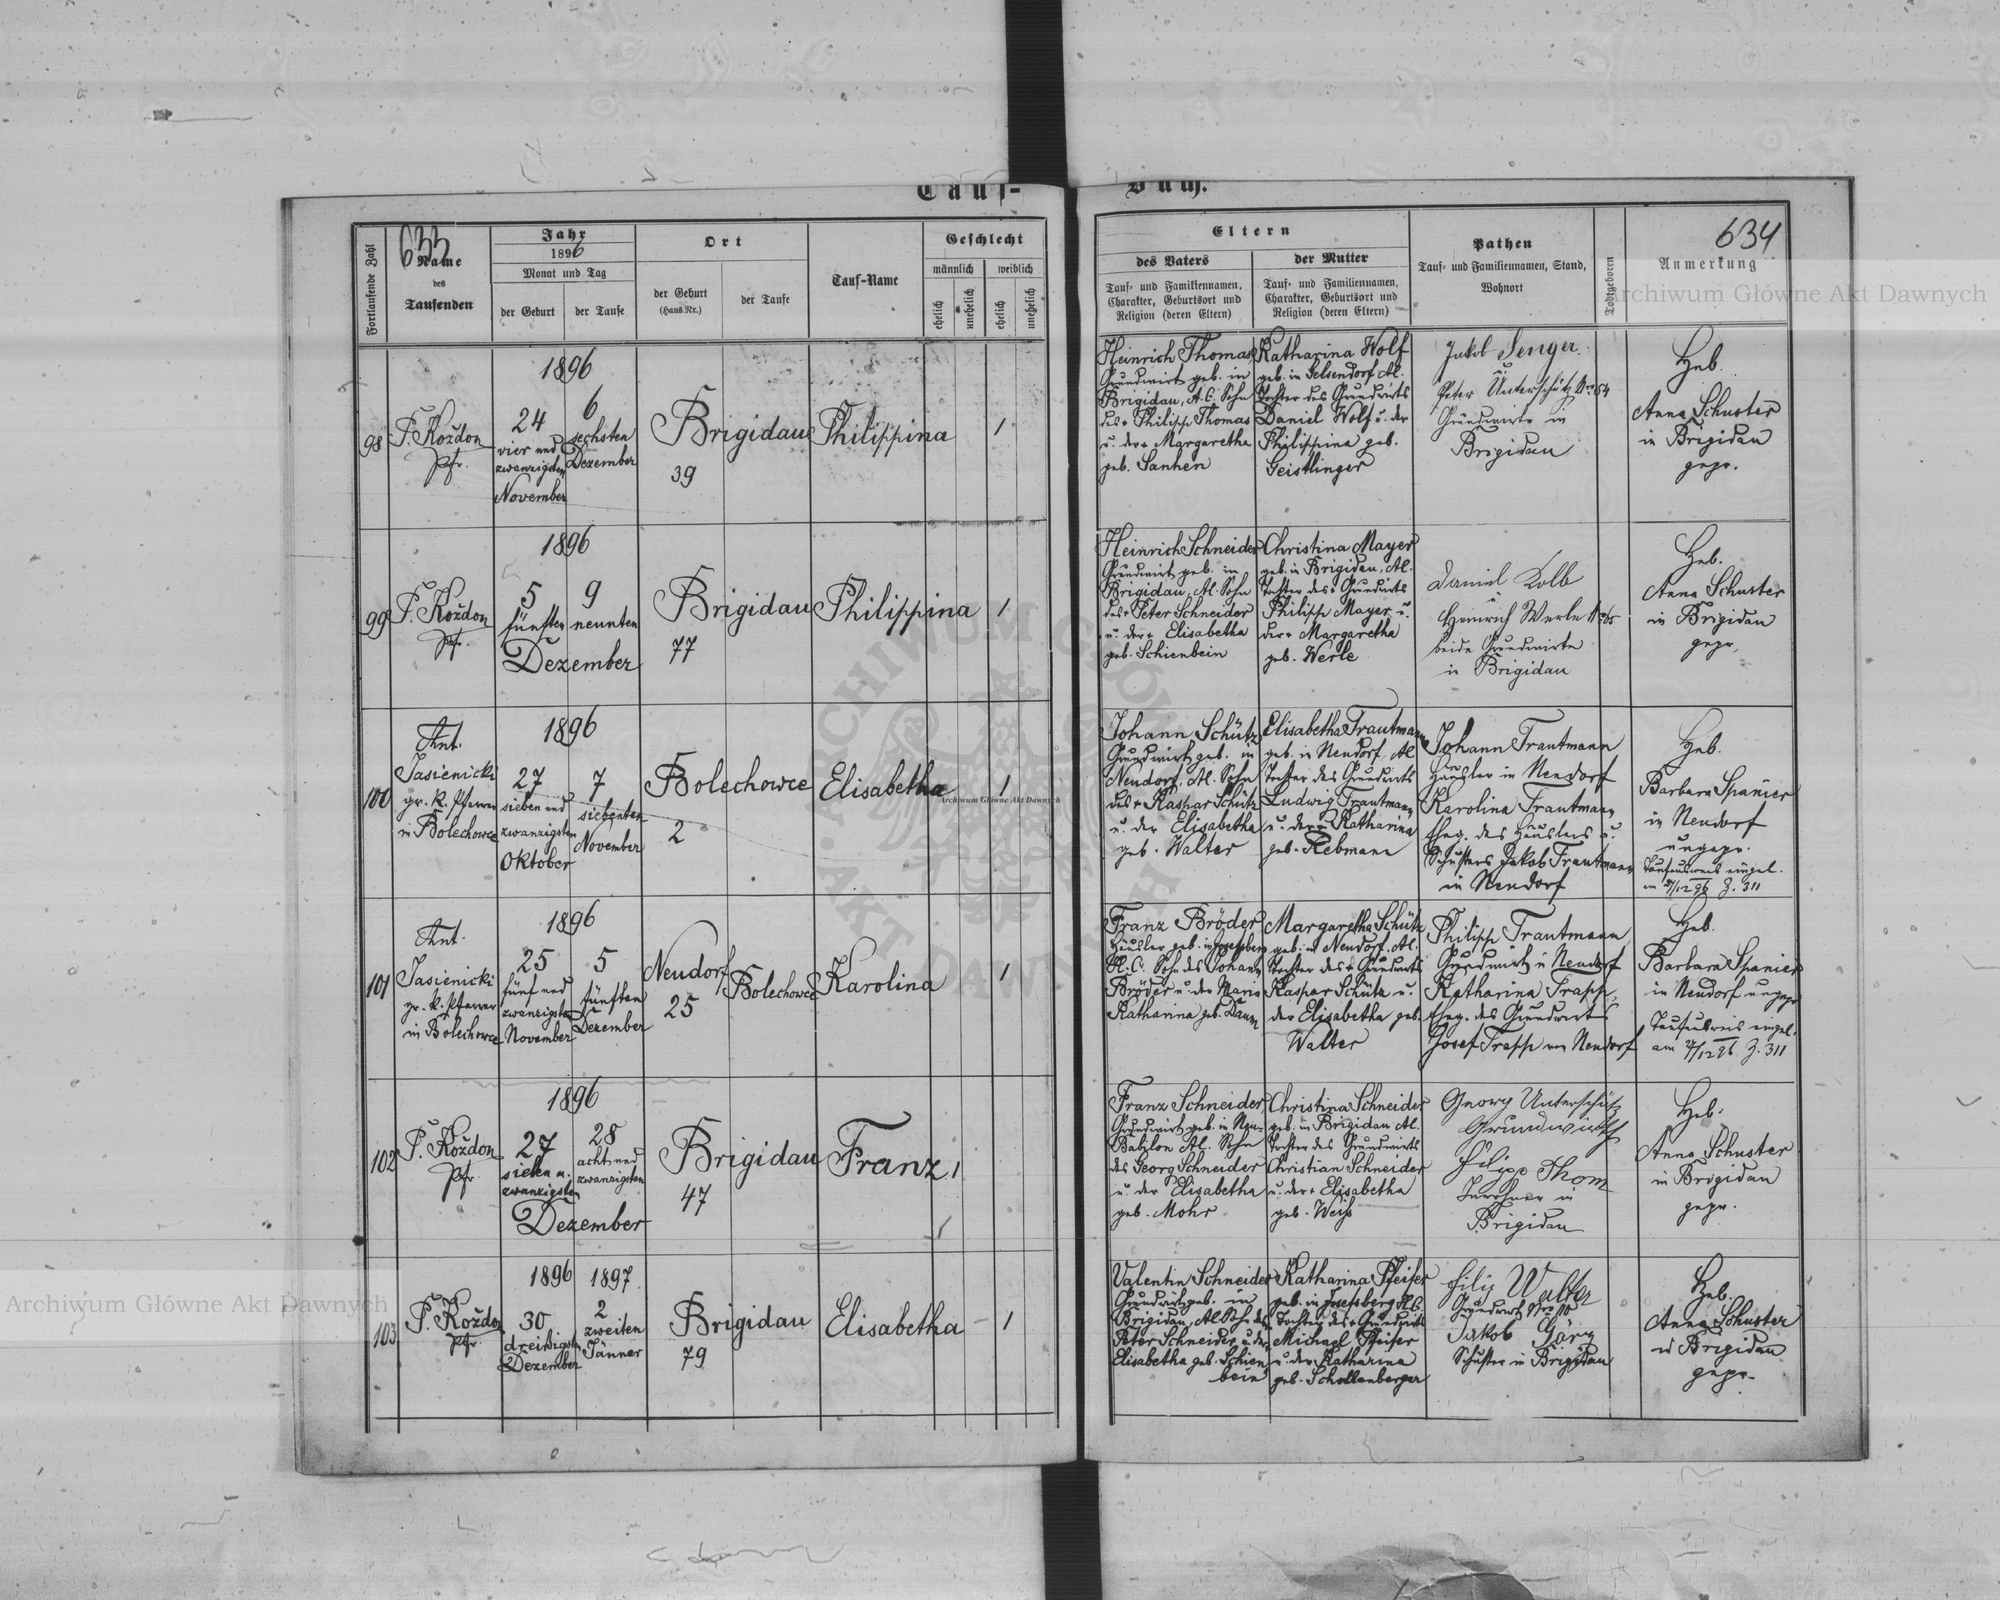 Tauf-
Buch.
633
634
Fortlaufende Zahl
Name
des
Taufenden
Jahr
1896
Monat und Tag
der Geburt
der Taufe
Ort
der Geburt
(Haus.Nr.)
der Taufe
Tauf-Name
Geschlecht
männlich
weiblich
ehelich
unehelich
ehelich
unehelich
Eltern
des Vaters
Tauf- und Familiennamen,
Charakter, Geburtsort und
Religion (deren Eltern)
der Mutter
Tauf- und Familiennamen,
Charakter, Geburtsort und
Religion (deren Eltern)
Pathen
Tauf- und Familiennamen, Stand,
Wohnort
Todtgeboren
Anmerkung
98
P. Koždon
Pfr.
1896
24
vier und
zwanzigsten
November
6
sechsten
Dezember
Brigidau
39
Philippina
1
Heinrich Thomas
Grundwirt geb. in
Brigidau, A.C. Sohn
des + Philipp Thomas
u. der + Margaretha
geb. Sanhen
Katharina Wolf
geb. in Gelsendorf Al.
Tochter des Grundwirts
Daniel Wolf u. der
Philippina geb.
Geistlinger
Jakob Senger
u.
Peter Unterschütz Nro 54
Grundwirte in
Brigidau
Heb.
Anna Schuster
in Brigidau
gepr.
99
P. Koždon
Pfr.
1896
5
fünften
9
neunten
Dezember
Brigidau
77
Philippina
1
Heinrich Schneider
Grundwirt geb. in
Brigidau, Al. Sohn
des + Peter Schneider
u. der + Elisabetha
geb. Schienbein
Christina Mayer
geb. in Brigidau, Al.
Tochter des + Grundwirts
Philipp Mayer u.
der + Margaretha
geb. Werle
Daniel Kolb
u.
Heinrich Werle
beide Grundwirte
in Brigidau
Heb.
Anna Schuster
in Brigidau
gepr.
100
Ant.
Jasienicki
gr. k. Pfarrer
in Bolechowce
1896
27
sieben und
zwanzigsten
Oktober
7
siebenten
November
Bolechowce
2
Elisabetha
1
Johann Schütz
Grundwirt geb. in
Neudorf, Al. Sohn
des + Kaspar Schütz
u. der Elisabetha
geb. Walter
Elisabetha Trautmann
geb. in Neudorf Al
Tochter des Grundwirts
Ludwig Trautmann
u. der + Katharina
geb. Rebmann
Johann Trautmann
Häusler in Neudorf
Karolina Trautmann
Eheg. des Häuslers u.
Schusters Jakob Trautmann
in Neudorf
Heb.
Barbara Spanier
in Neudorf
ungepr.
Taufausweis eingel.
am 27/12 96 Z. 311
101
Ant.
Jasienicki
gr. k. Pfarrer
in Bolechowce
1896
25
fünf und
zwanzigsten
November
5
fünften
Dezember
Neudorf
25
Bolechowce
Karolina
1
Franz Bröder
Häusler geb. in Josefsberg
H.C. Sohn des Johann
Bröder u. der Maria
Katharina geb. Daum
Margaretha Schütz
geb. in Neudorf, Al.
Tochter des + Grundwirts
Kaspar Schütz u.
der Elisabetha geb.
Walter
Philipp Trautmann
Grundwirt in Neudorf
Katharina Trapp,
Eheg. des Grundwirts
Josef Trapp von Neudorf
Heb.
Barbara Spanier
in Neudorf ungepr
Taufausweis eingel.
am 27/12 96 Z. 311
102
P. Koždon
Pfr
1896
27
sieben u.
zwanzigsten
28
acht und
zwanzigsten
Dezember
Brigidau
47
Franz
1
Franz Schneider,
Grundwirt geb. in Neu-
Babilon Al. Sohn
des Georg Schneider
u. der Elisabetha
geb. Mohr
Christina Schneider
geb. in Brigidau Al.
Tochter des Grundwirts
Christian Schneider
u. der + Elisabetha
geb. Weiß
Georg Unterschütz
Grundwirth
Filipp Thom
Inwohner in
Brigidau
Heb.
Anna Schuster
in Brigidau
gepr.
103
P. Koždon
Pfr.
1896
30
dreißigsten
Dezember
1897
2
zweiten
Jänner
Brigidau
79
Elisabetha
1
Valentin Schneider
Grundwirt geb. in
Brigidau, Al Sohn des
Peter Schneider u. der
Elisabetha geb. Schien
bein
Katharina Pfeifer
geb. in Josefsberg H.C.
Tochter des + Grundwirts
Michael Pfeifer
u. der Katharina
geb. Schollenberger
Filip Walter
Grundwirth Nro 10
Jakob Görg
Schuster in Brigidau
Heb.
Anna Schuster
in Brigidau
gepr.
Archiwum Główne Akt Dawnych
Archiwum Główne Akt Dawnych
Archiwum Główne Akt Dawnych